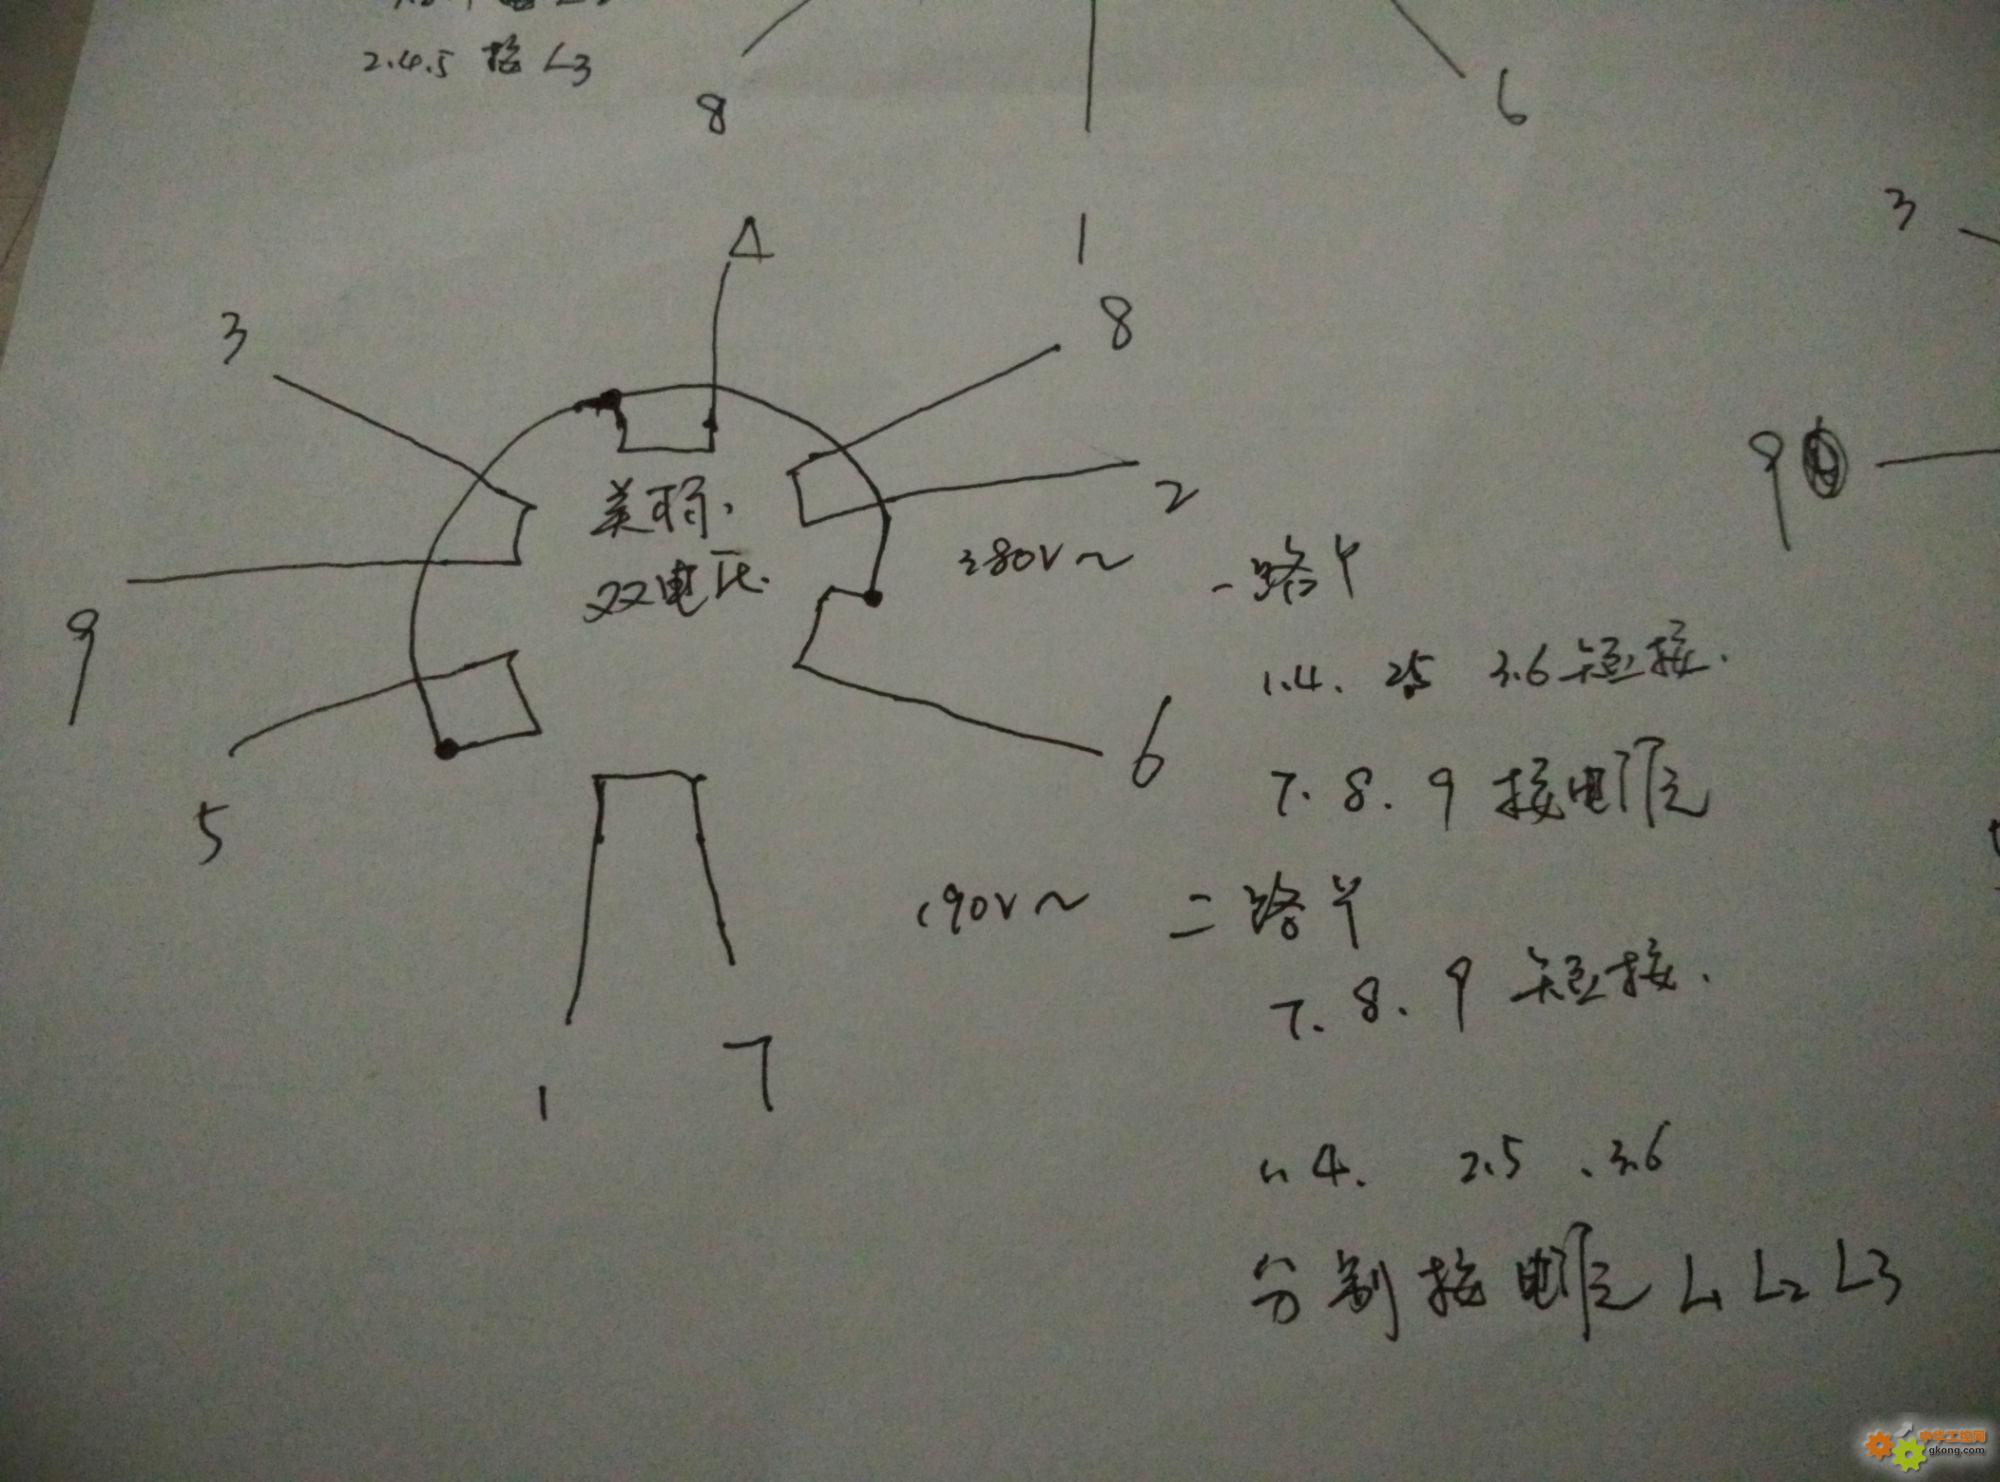 2.4.5 接 L3
8
1
6
3
4
8
3
2
9
9
5
6
1
7
双电压.
380V~
一路Y
1.4. 2.5 3.6 短接.
7. 8. 9 接电源
190V~
二路Y
7. 8. 9 短接.
1. 4. 2.5 . 3.6
分别接电源 L1 L2 L3
中华工控网
gkong.com